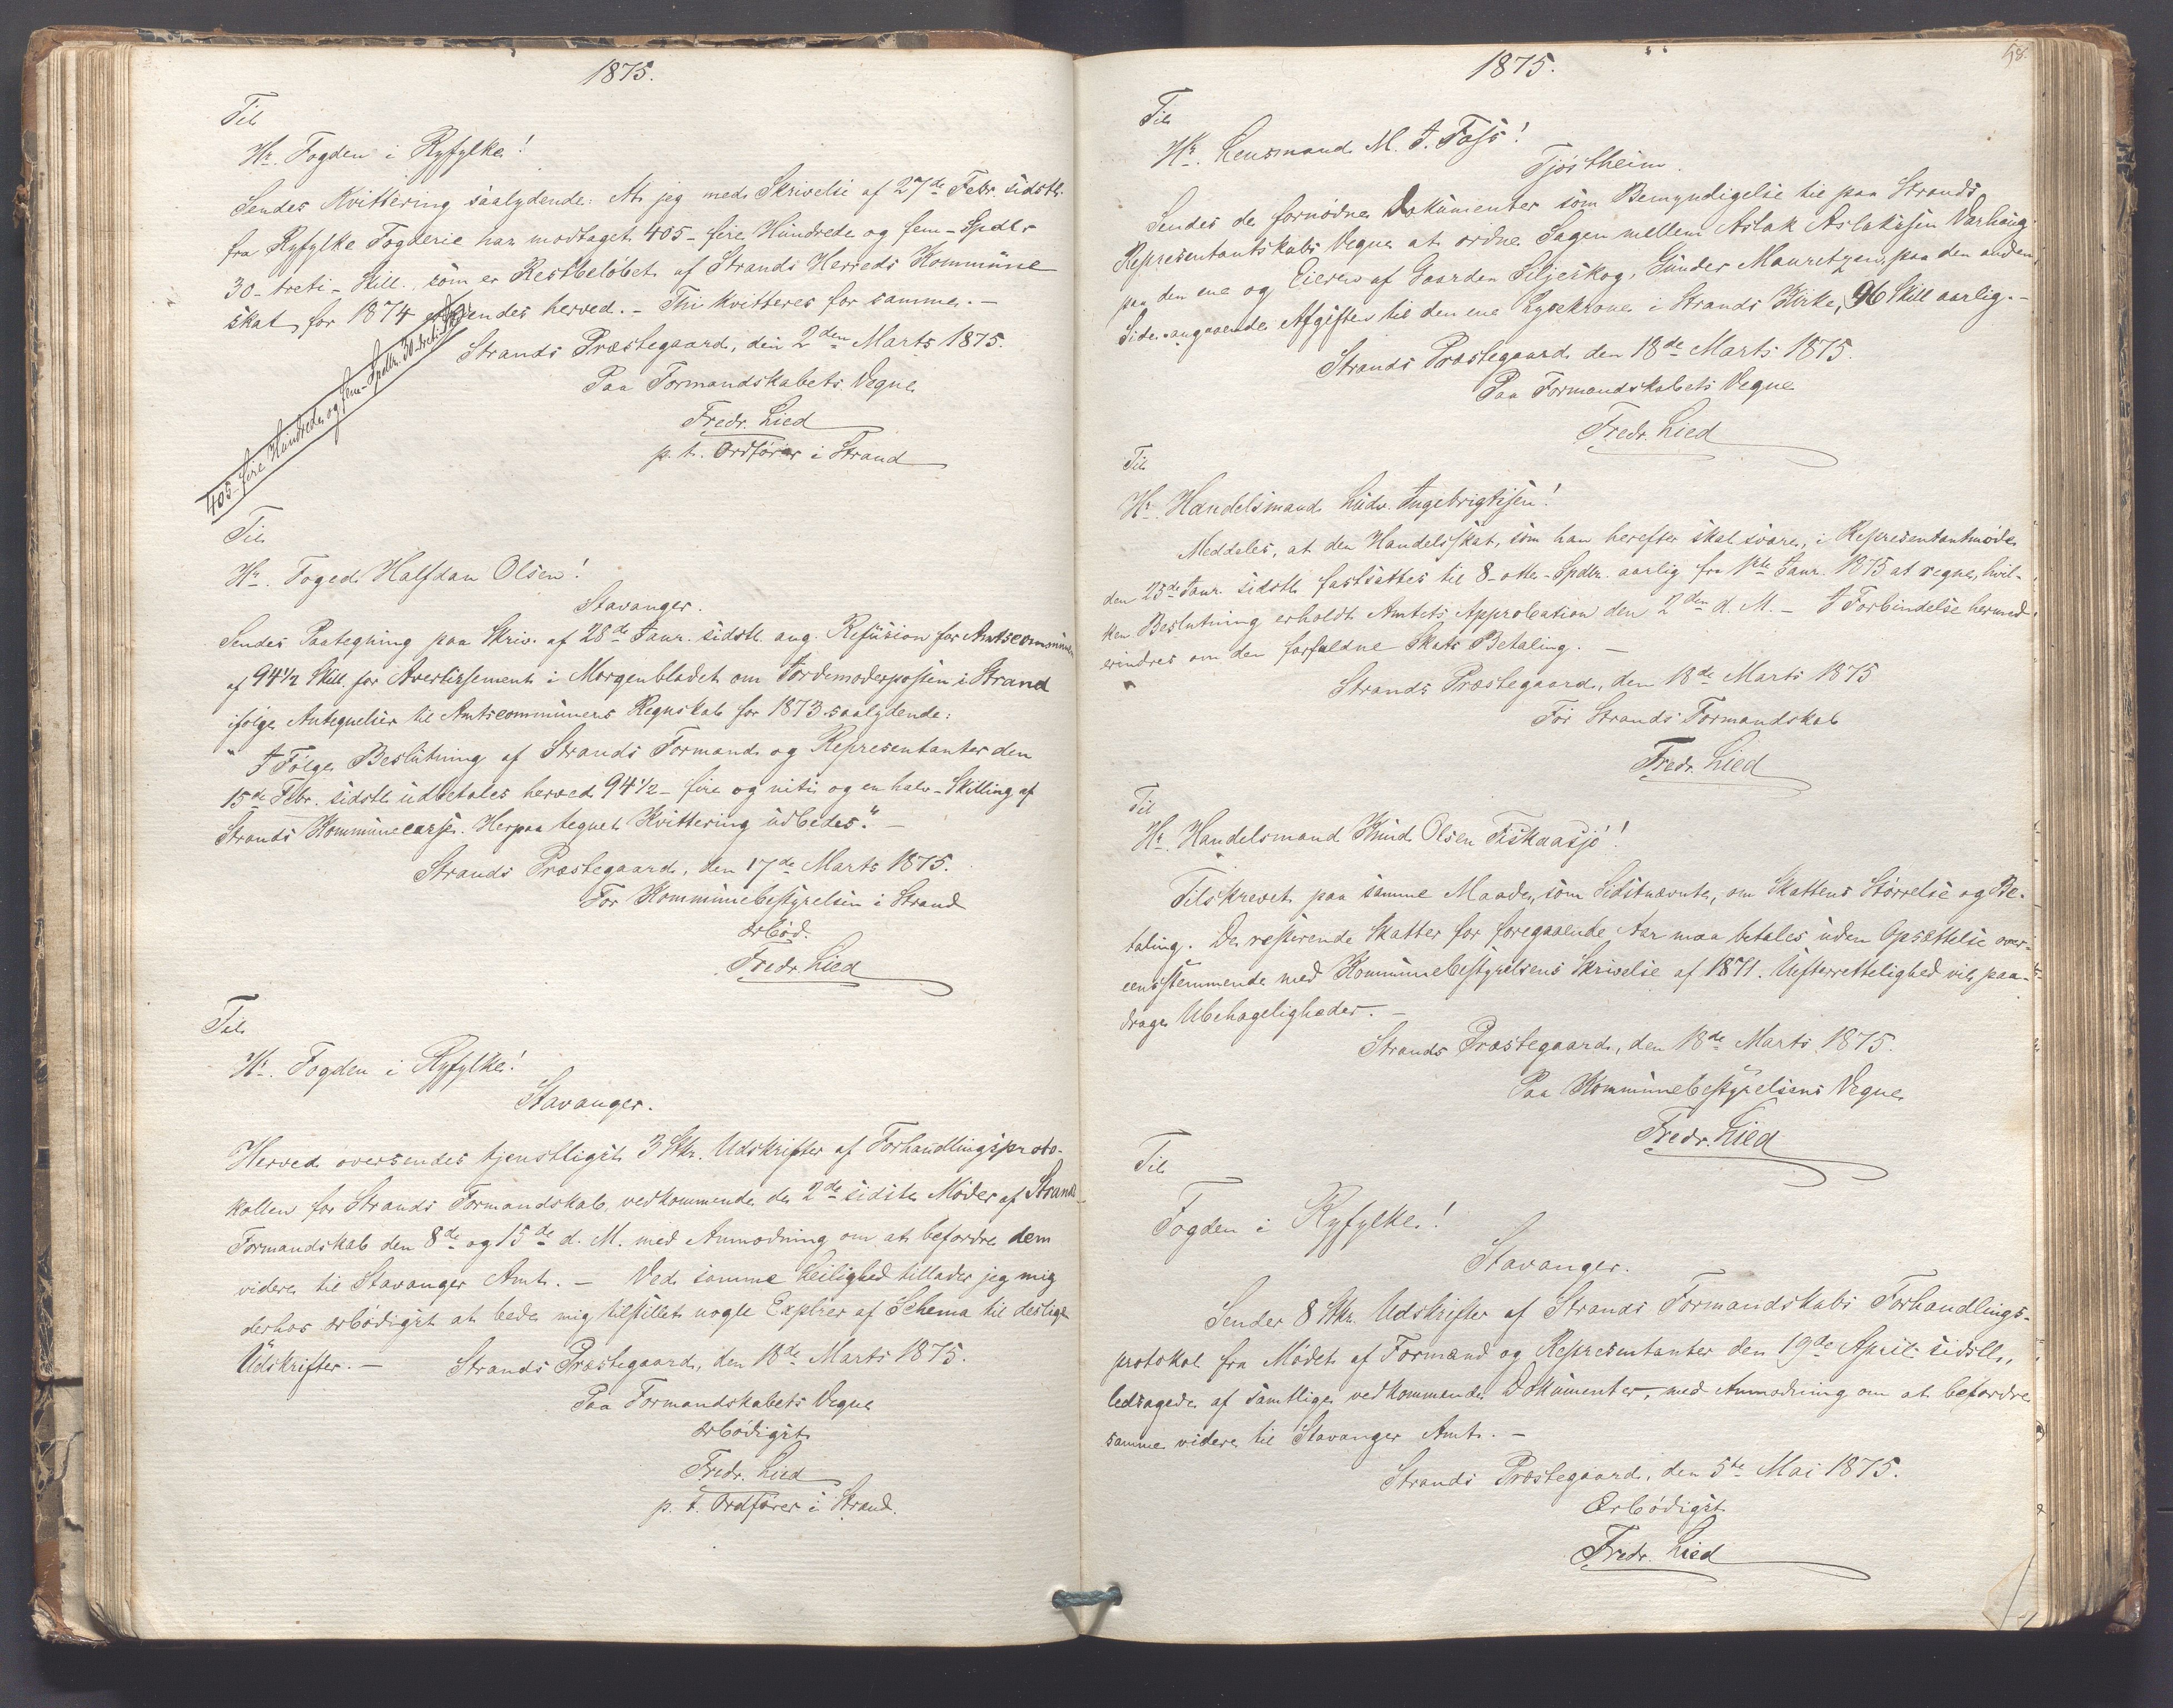 1875.
Til
Hr. Fogden i Ryfylke!
Sendes Kvittering saalydende: At jeg med Skrivelse af 27de Febr. sidstl.
fra Ryfylke Fogderie har modtaget 405 - fire Hundrede og fem - Spdlr.
30 - treti - Skill., som er Restbeløbet af Strands Herreds Kommune
skat for 1874 herved. - Thi kvitteres for samme. -
Strands Præstegaard, den 2den Marts 1875.
Paa Formandskabets Vegne
Fredr. Lied
p. t. Ordfører i Strand
405 - fire Hundrede og fem - Spdlr. 30 - treti - Sk.
Til
Hr. Foged Halfdan Olsen!
Stavanger.
Sendes Paategning paa Skriv. af 28de Janr. sidstl. ang. Refusion for Amtscommunen
af 94 1/2 Skill. for Avertissement i Morgenbladet om Jordemoderposten i Strand
ifølge Antegnelser til Amtscommunens Regnskab for 1873 saalydende:
"I Følge Beslutning af Strands Formænd og Repræsentanter den
15de Febr. sidstl. udbetales herved 94 1/2 - fire og niti og en halv - Skilling af
Strands Kommunecasse. Herpaa tegnet Kvittering udbedes." -
Strands Præstegaard, den 17de Marts 1875.
For Kommunebestyrelsen i Strand
ærbød.
Fredr. Lied
Til
Hr. Fogden i Ryfylke!
Stavanger.
Herved oversendes tjenstligst 3 Stkr. Udskrifter af Forhandlingsproto-
kollen for Strands Formandskab, vedkommende de 2de sidste Møder af Strands
Formandskab den 8de og 15de d. M. med Anmodning om at befordre dem
videre til Stavanger Amt. - Ved samme Leilighed tillader jeg mig
derhos ærbødigst at bede mig tilstillet nogle Explrer af Schema til deslige
Udskrifter. - Strands Præstegaard, den 18de Marts 1875.
Paa Formandskabets Vegne
ærbødigst
Fredr. Lied
p. t. Ordfører i Strand.
58.
1875.
Til
Hr. Lensmand M. J. Foss!
Tjøstheim.
Sendes de fornødne Dokumenter som Bemyndigelse til paa Strands
Repræsentantskabs Vegne at ordne Sagen mellem Aslak Aslaksen Varhaug
paa den ene og Eieren af Gaarden Siljeskog, Gunder Mauritzen, paa den anden
Side angaaende Afgiften til den ene Lysekrone i Strands Kirke, 96 Skill aarlig. -
Strands Præstegaard den 18de Marts 1875.
Paa Formandskabets Vegne
Fredr. Lied
Til
Hr. Handelsmand Ludv. Ingebrigtsen!
Meddeles, at den Handelsskat, som han herefter skal svare, i Repræsentantmøde
den 25de Janr. sidstl. fastsattes til 8 - otte - Spdlr. aarlig fra 1ste Janr. 1875 at regne, hvil-
ken Beslutning erholdt Amtets Approbation den 2den d. M. - I Forbindelse hermed
erindres om den forfaldne Skats Betaling. -
Strands Præstegaard, den 18de Marts 1875
For Strands Formandskab
Fredr. Lied
Til
Hr. Handelsmand Knud Olsen Fiskaasjø!
Tilskrevet paa samme Maade, som Sidstnævnte, om Skattens Størrelse og Be-
taling. De resterende Skatter for foregaaende Aar maa betales uden Opsættelse over-
eensstemmende med Kommunebestyrelsens Skrivelse af 1871. Uefterrettelighed vil paa-
drage Ubehageligheder. -
Strands Præstegaard, den 18de Marts 1875.
Paa Kommunebestyrelsens Vegne
Fredr. Lied
Til
Fogden i Ryfylke!
Stavanger.
Sender 8 Stkr. Udskrifter af Strands Formandskabs Forhandlings-
protokol fra Mødet af Formænd og Repræsentanter den 19de April sidstl.,
ledsagede af samtlige vedkommende Dokumenter, med Anmodning om at befordre
samme videre til Stavanger Amt. -
Strands Præstegaard, den 5te Mai 1875.
Ærbødigst
Fredr. Lied